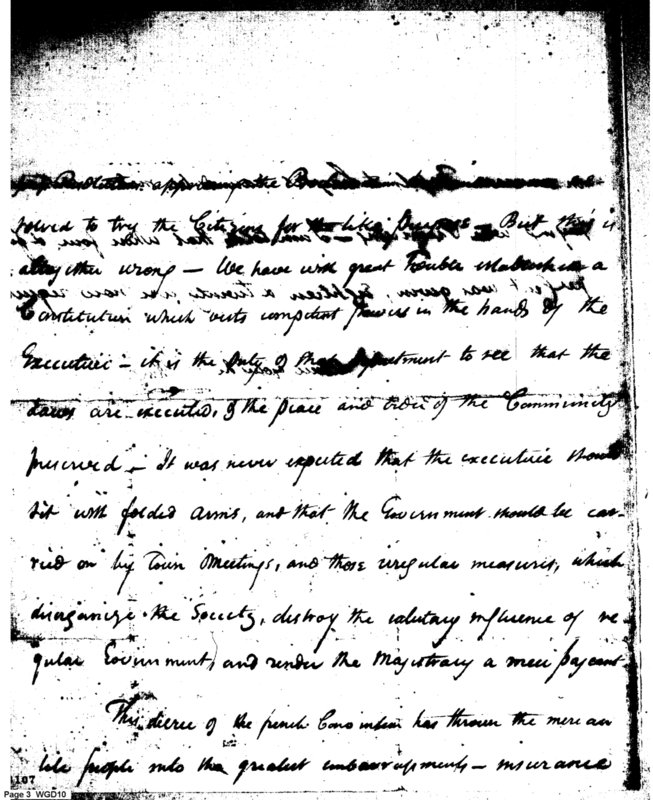 Resolution approving the
solved to try the Citizens for the like Purpose — But this is
altogether wrong — We have with great Trouble established a
Constitution which vests competent powers in the hands of the
Executive — it is the Duty of that Department to see that the
Laws are executed, & the peace and order of the Community
preserved — It was never expected that the executive should
sit with folded arms, and that the Government should be car-
ried on by Town Meetings, and those irregular measures, which
disorganize the Society, destroy the salutary influence of re-
gular Government, and render the Magistracy a mere pageant
This decree of the french Convention has thrown the mercan
tile people into the greatest embarrassments — insurance
107
Page 3 WGD10